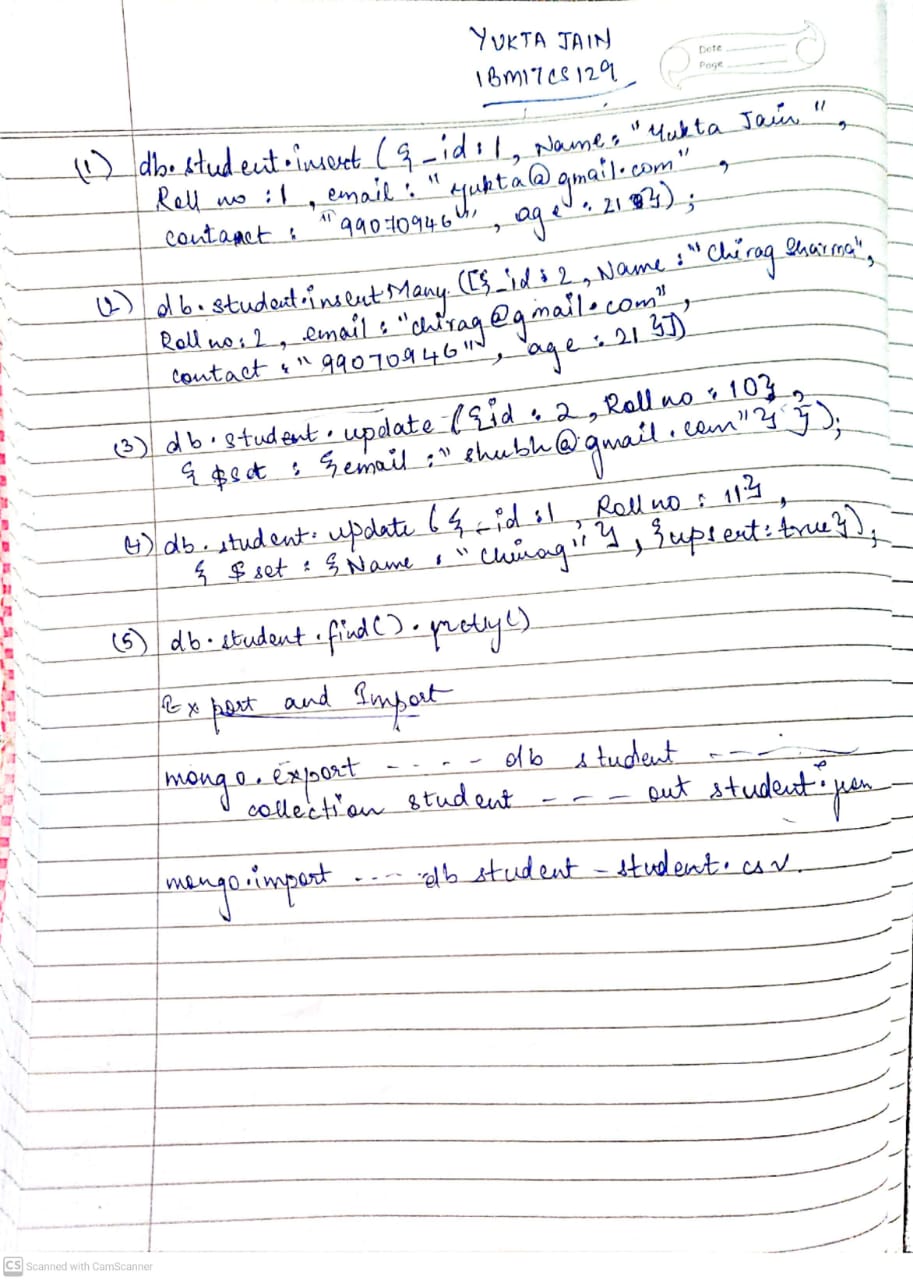 YUKTA JAIN
1BM17CS129
Date
Page
(1) db.student.insert ({_id:1, Name: "Yukta Jain",
Roll no:1, email: "yukta@gmail.com",
contanct: "99070946", age: 21 }) ;
(2) db.student.insertMany ([{_id:2, Name: "Chirag Sharma",
Roll no:2, email: "chirag@gmail.com",
contact: "99070946", age: 21 }])
(3) db.student.update ({id:2, Roll no:10},
{ $set : {email:" shubh@gmail.com"} });
(4) db.student.update ({_id:1, Roll no: 11},
{ $set : {Name : "Chirag"}, {upsert:true});
(5) db.student.find().pretty()
Export and Import
mongo.export ----- db student ---
collection student --- out student.json
mongo.import ---- db student - student.csv.
CS Scanned with CamScanner